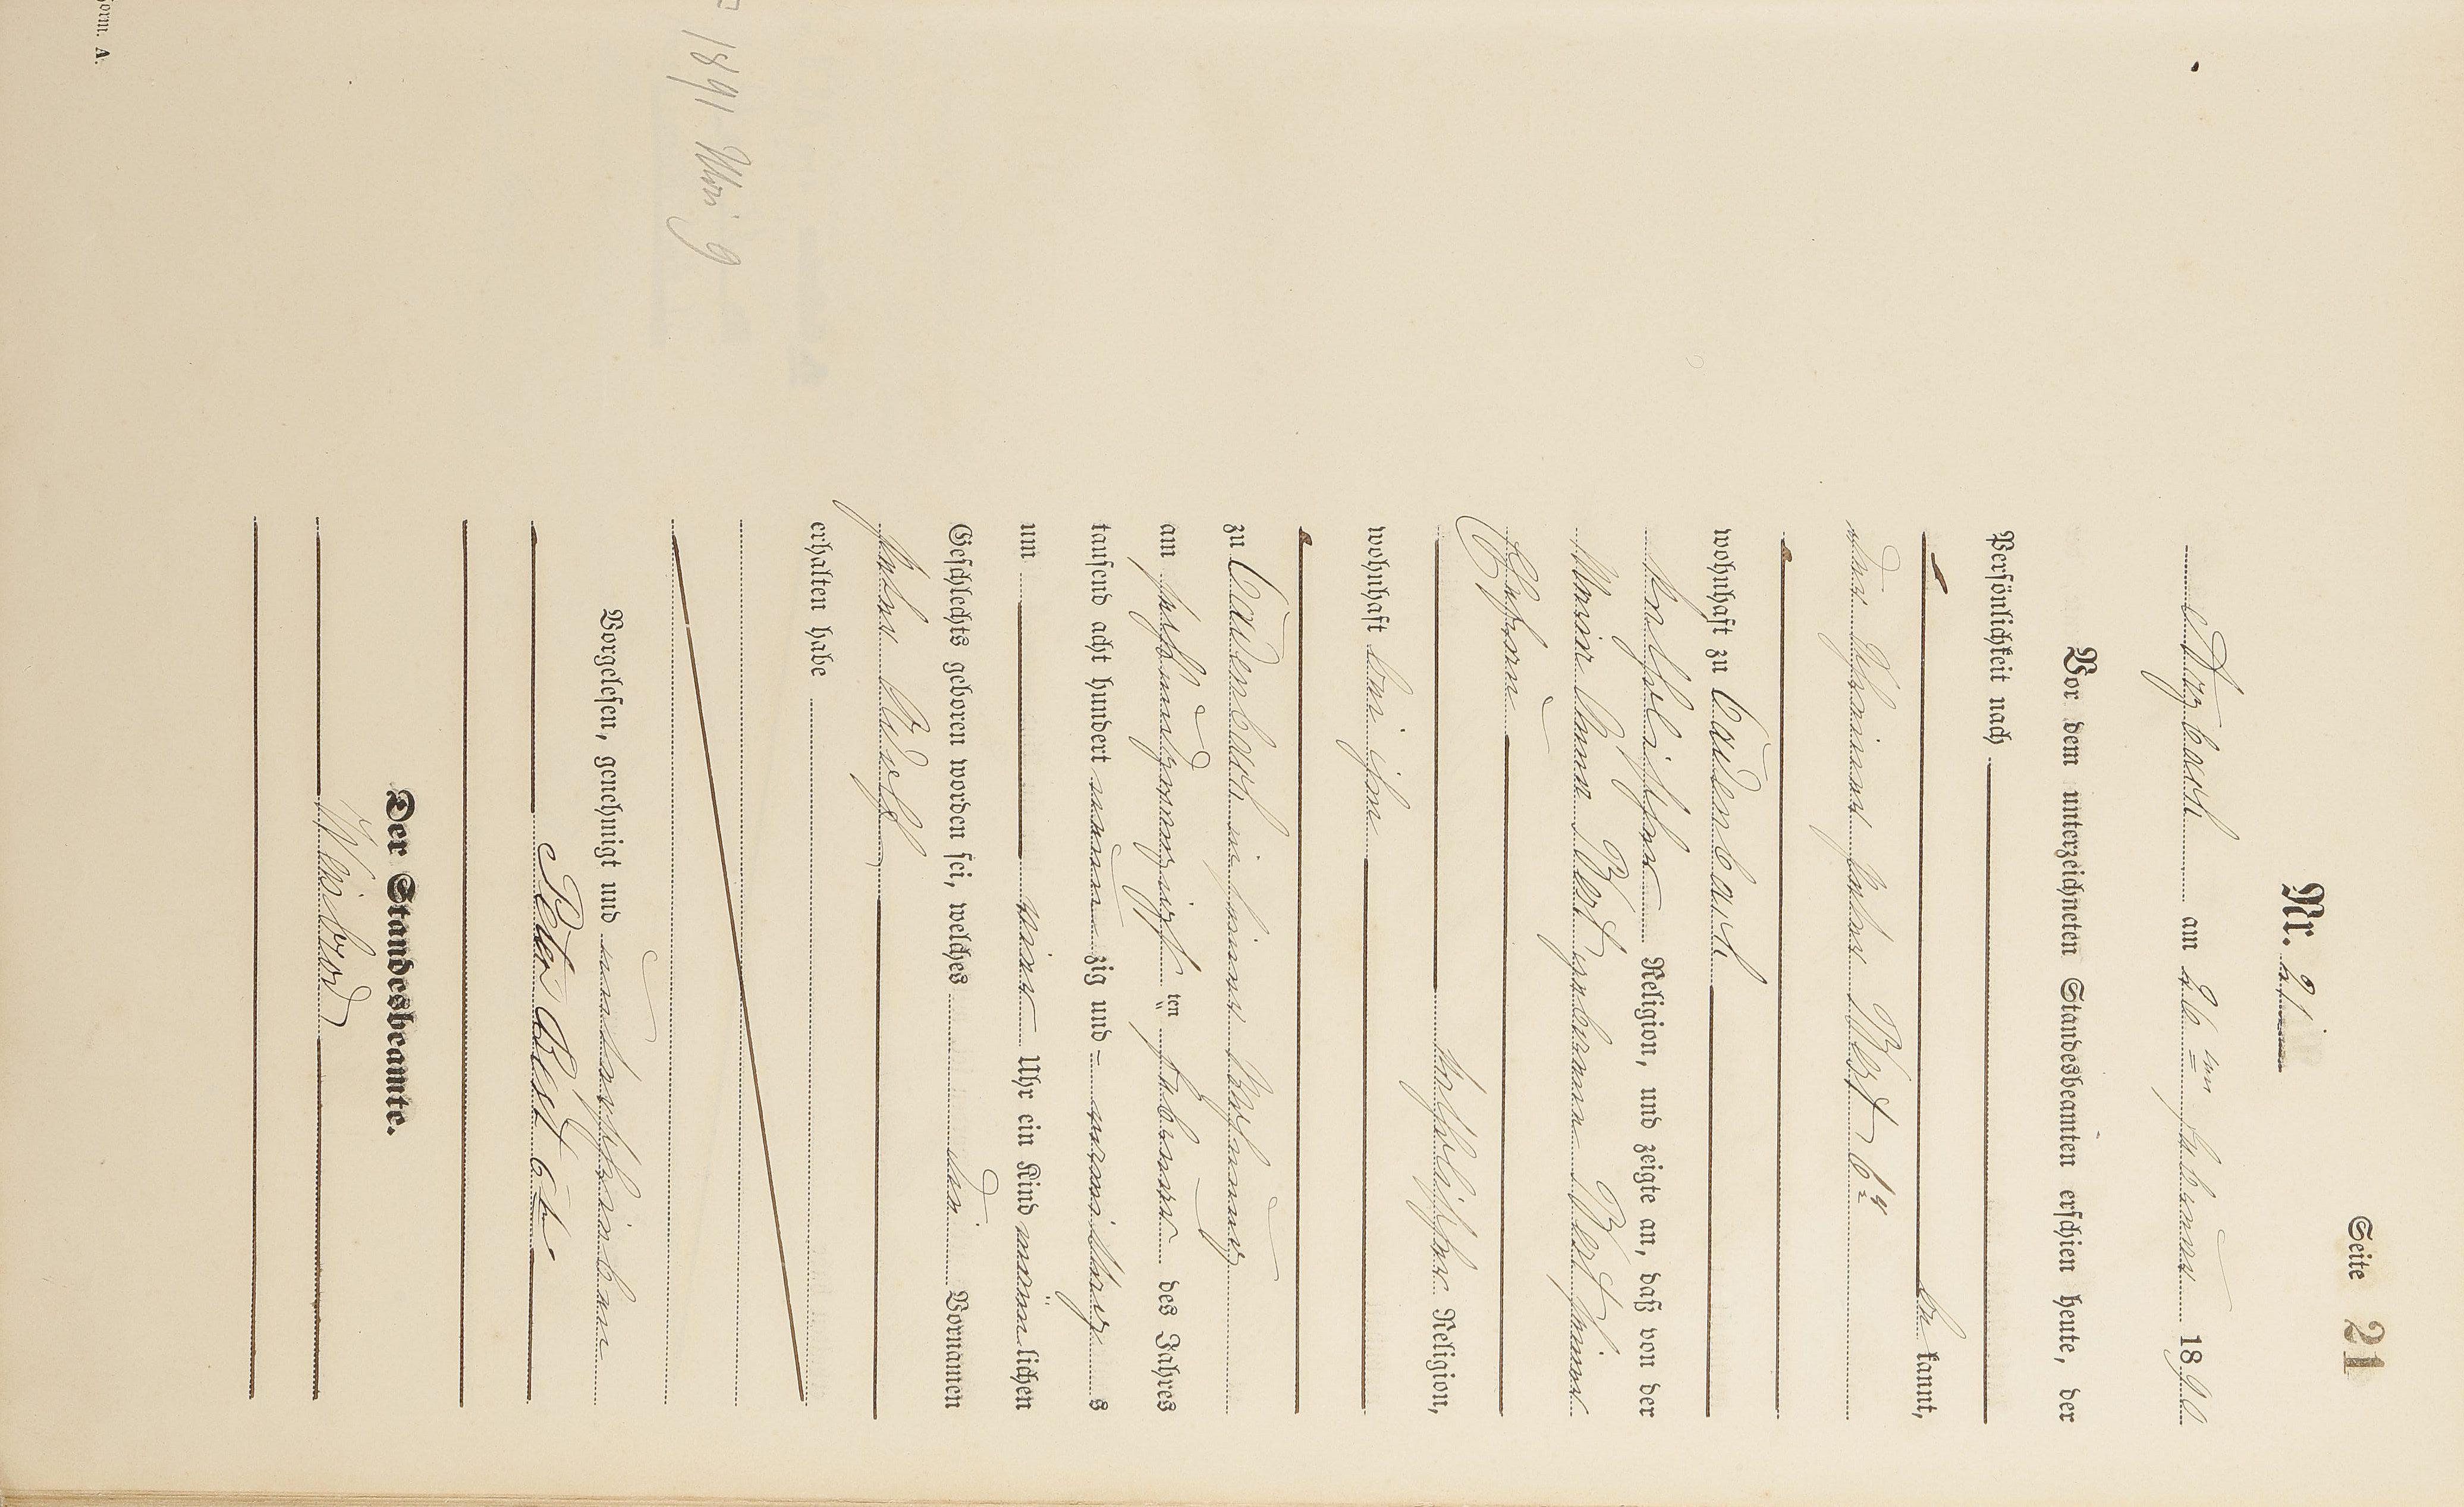 Seite 21
Nr. 21.
am 26ten Februar 1890
Vor dem unterzeichneten Standesbeamten erschien heute, der
Persönlichkeit nach
be kannt,
der Johann Best 6r
wohnhaft zu Caudenbach
katholischer Religion, und zeigte an, daß von der
Maria Anna Best geborene Best seiner
Ehefrau
katholischer Religion,
wohnhaft bei ihm
zu Caudenbach in seiner Wohnung
am fünfundzwanzigsten Februar des Jahres
tausend acht hundert neun zig und
um Uhr ein Kind männlichen
Geschlechts geboren worden sei, welches den Vornamen
Adolf
erhalten habe
Vorgelesen, genehmigt und unterschrieben
Peter Best 6r
Der Standesbeamte.
Weisbrod
1891 Mai 9
Form. A.